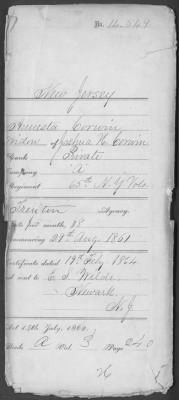 No. 14.349
New Jersey
Corwin
widow of Joshua H. Corwin
Rank Private
Company A
Regiment 65th N.Y. Vols
Trenton Agency.
Rate per month, $8
Commencing 29th Aug 1861
Certificate dated 19th Feby 1864
and sent to E. S. Wilde
Newark
N.J.
Act 14th July, 1862.
Book A Vol. 3 Page 240